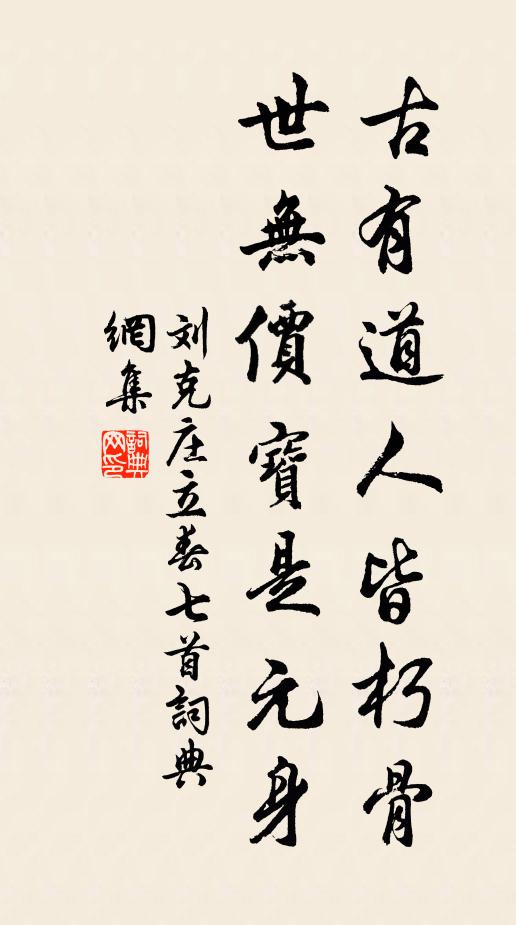 古有道人皆朽骨
世無價寶是元身
刘克庄立春七首詞典
網集
詞典
网印